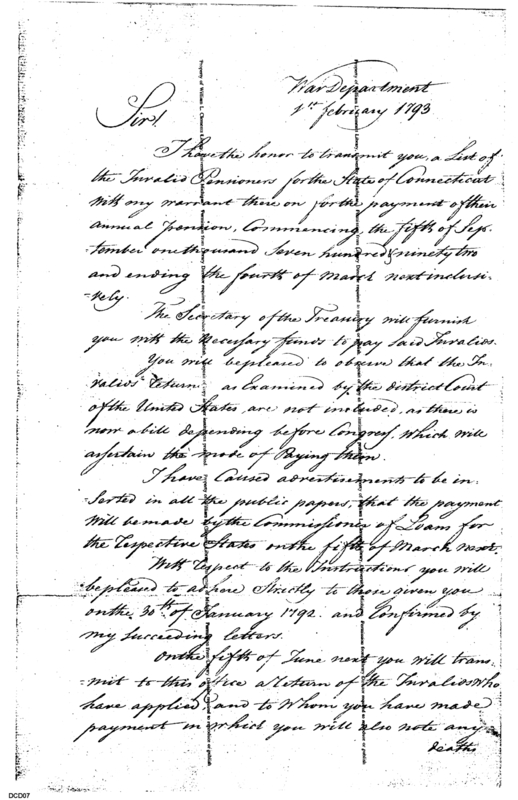 War Department
1st february 1793
Sir!
I have the honor to transmit you, a List of
the Invalid Pensioners for the State of Connecticut
With my warrant there on for the payment of their
annual pension, Commencing the fifth of Sep-
-tember one thousand Seven hundred & ninety two
and ending the fourth of March next inclusi-
-vely.
The Secretary of the Treasury will furnish
you with the necessary funds to pay said Invalids.
You will be pleased to observe that the In-
valids return as Examined by the district Court
of the United States, are not included, as there is
now a bill depending before Congress, Which will
ascertain the mode of Paying them.
I have Caused advertisements to be in-
Serted in all the public papers, that the payment
Will be made by the Commissioner of Loans for
the respective States on the fifth of March next.
With respect to the Instructions you will
be pleased to adhere Strictly to those given you
on the 30th of January 1792. and Confirmed by
my Succeeding letters.
On the fifth of June next you will trans-
-mit to this office a return of the Invalids Who
have applied, and to Whom you have made
payment in which you will also note any
deaths
DCD07